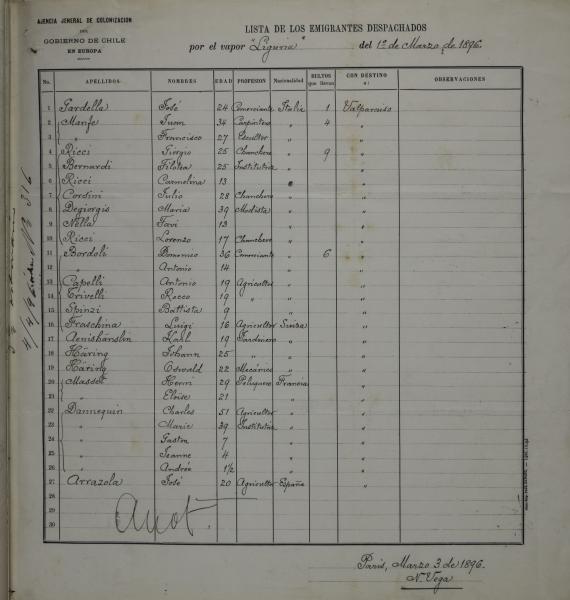 AJENCIA JENERAL DE COLONIZACION
DEL
GOBIERNO DE CHILE
EN EUROPA
LISTA DE LOS EMIGRANTES DESPACHADOS
por el vapor "Liguria" del 1º de Marzo de 1896.
No. APELLIDOS NOMBRES EDAD PROFESION Nacionalidad BULTOS que llevan CON DESTINO a: OBSERVACIONES
1 Gardella José 24 Comerciante Italia 1 Valparaiso
2 Manfe Juan 34 Carpintero " 4 "
3 " Francisco 27 Escultor " "
4 Ricci Giorgio 25 Chanchero " 9 "
5 Bernardi Filotea 25 Institutriz " "
6 Ricci Carmelina 13 "
7 Corsini Julio 28 Chanchero " "
8 Degiorgis Maria 39 Modista " "
9 Nella 13 " "
10 Ricci Lorenzo 17 Chanchero " "
11 Bordoli Domenico 36 Comerciante " 6 "
12 " Antonio 14 " "
13 Capelli Antonio 19 Agricultor " "
14 Trivelli Rocco 19 " " "
15 Spinzi Battista 9 " "
16 Fraschina Luigi 16 Agricultor Suiza "
17 Aenishänslin Karl 19 Jardinero " "
18 Häring Johann 25 " " "
19 Häring Oswald 22 Mecánico " "
20 Massot Henri 29 Peluquero Francia "
21 " Eloise 21 " "
22 Dannequin Charles 51 Agricultor " "
23 " Marie 39 Institutriz " "
24 " Gaston 7 " "
25 " Jeanne 4 " "
26 " Andrée 1/2 " "
27 Arrazola José 20 Agricultor España "
28
29
30
Paris, Marzo 3 de 1896.
N. Vega